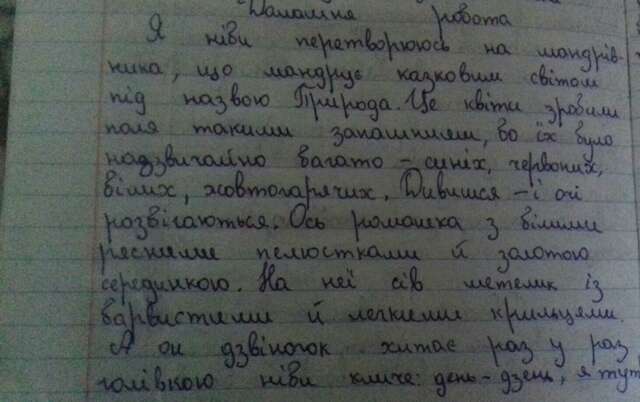 Домашня робота
Я ніби перетворююсь на мандрів-
ника, що мандрує казковим світом
під назвою Природа. Це квіти зробили
поля такими запашними, бо їх було
надзвичайно багато - синіх, червоних,
білих, жовтогарячих. Дивишся - і очі
розбігаються. Ось ромашка з білими
рясними пелюстками й золотою
серединкою. На неї сів метелик із
барвистими й легкими крильцями.
А он дзвіночок хитає раз у раз
голівкою ніби кличе: день-дзень, я тут